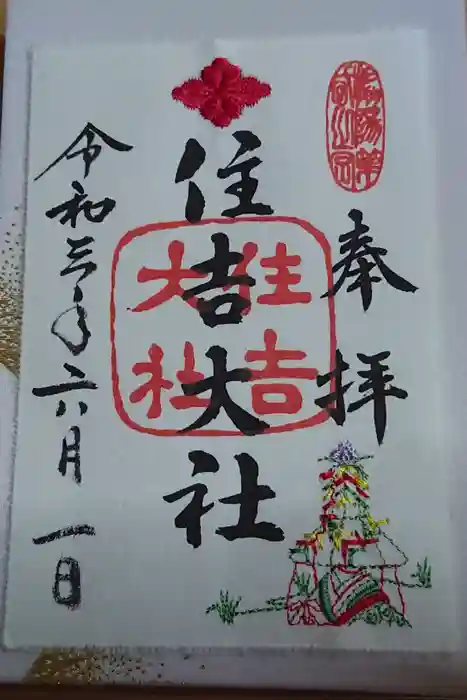 奉拝
住吉大社
住吉
大社
令和三年六月一日